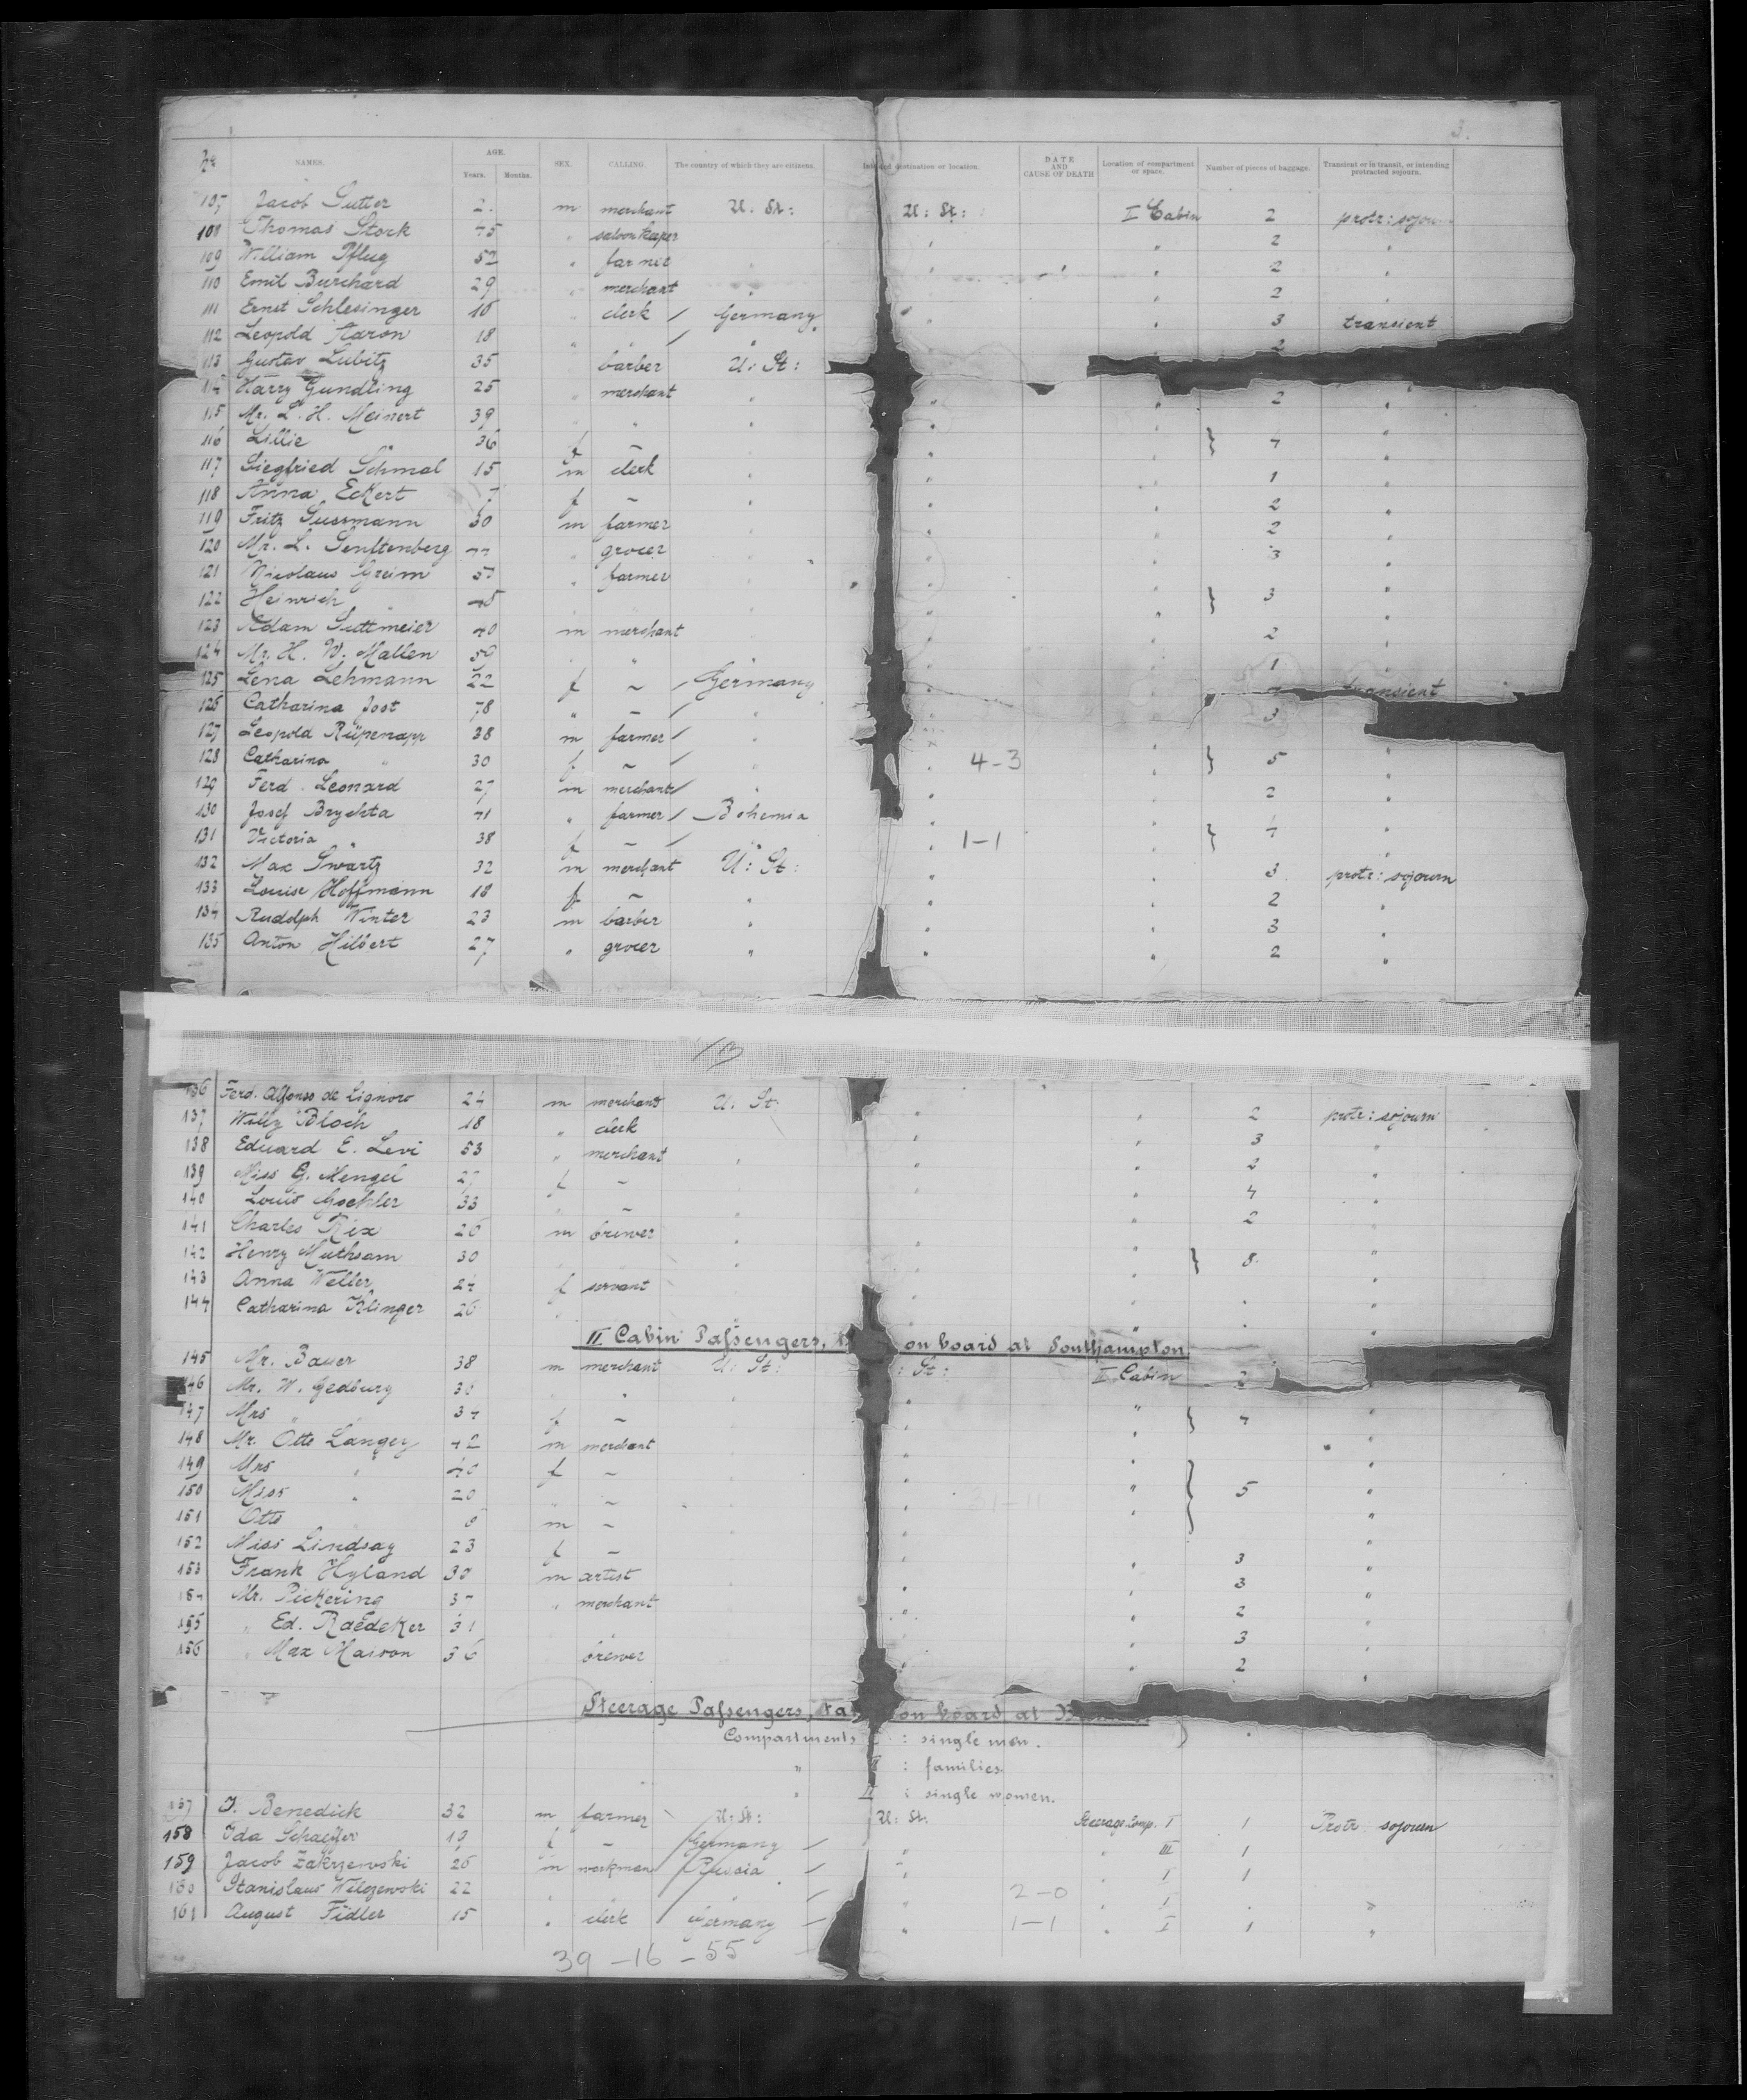 3.
No NAMES. AGE. Years. Months. SEX. CALLING. The country of which they are citizens. Intended destination or location. DATE AND CAUSE OF DEATH Location of compartment or space. Number of pieces of baggage. Transient or in transit, or intending protracted sojourn.
107 Jacob Sutter m merchant U. St: U: St: I Cabin 2 protr: sojourn
108 Thomas Stork 45 " saloon keeper " " 2 "
109 William Pflug 52 " farmer " " " 2 "
110 Emil Burchard 29 " merchant " " 2 "
111 Ernst Schlesinger 16 " clerk / Germany " " 3 transient
112 Leopold Aaron 18 " " / " 2
113 Gustav Lubitz 35 barber U. St:
114 Harry Gundling 25 " merchant " " " 2 "
115 Mr. L. H. Meinert 39 " " " " " "
116 Lillie " 36 f – " } 4 "
117 Siegfried Schmal 15 m clerk " " " 1
118 Anna Eckert f – " " " 2 "
119 Fritz Sussmann 30 m farmer " " 2 "
120 Mr. L. Senftenberg 44 " grocer " " 3 "
121 Nicolaus Greim " farmer " "
122 Heinrich " 45 " " " } 3 "
123 Adam Suttmeier 40 m merchant " " 2
124 Mr. H. W. Mallen 59 " " " 1 "
125 Lena Lehmann 22 f – / Germany " transient
126 Catharina Jost 78 " – / " " 3
127 Leopold Rüpenapp 38 m farmer / " " " "
128 Catharina " 30 f – / " " 4-3 " } 5 "
129 Ferd. Leonard 27 m merchant / " " " 2 "
130 Josef Brychta 41 " farmer / Bohemia " " "
131 Victoria " 38 f – / " " 1-1 " } 4 "
132 Max Swartz 32 m merchant U: St: " " 3 protr: sojourn
133 Louise Hoffmann 18 f – " " " 2 "
134 Rudolph Winter 23 m barber " " " 3 "
135 Anton Hilbert 27 " grocer " " " 2 "
136 Ferd. Alfonso de Lignoro 24 m merchant U. St. " " 2 protr: sojourn
137 Willy Bloch 18 " clerk " " 3 "
138 Eduard E. Levi 53 " merchant " " " 2 "
139 Miss G. Mengel 27 f – " " 4 "
140 Louis Goehler 33 " – " " 2 "
141 Charles Rix 26 m brewer " " " "
142 Henry Muthsam 30 " " " } 8 "
143 Anna Weller 24 f servant " " "
144 Catharina Klinger 26 " " " "
II Cabin Passengers, on board at Southampton
145 Mr. Bauer 38 m merchant U: St: St: II Cabin 2
146 Mr. W. Gedburg 36 " " " " " "
147 Mrs " " 34 f – " " } 4 "
148 Mr. Otto Langey 42 m merchant " " "
149 Mrs " 40 f – " " "
150 Miss " 20 " – " " } 5 "
151 Otto " m – " "
152 Miss Lindsay 23 f – " " 3 "
153 Frank Hyland 30 m artist " " 3 "
154 Mr. Pickering 34 " merchant " " 2 "
155 " Ed. Raedeker 31 " " " 3 "
156 " Max Maivon 36 brewer " " 2 "
Steerage Passengers, on board at
Compartments : single men.
" II : families
" : single women.
157 J. Benedick 32 m farmer U: St: U: St. Steerage Comp. I 1 Protr sojourn
158 Ida Schaeffer 19 f – Germany – " " III 1
159 Jacob Zakrzewski 26 m workman Russia – " " I 1
160 Stanislaus Wilczewski 22 " " " – " 2-0 " I "
161 August Fidler 15 " clerk / Germany – " 1-1 " I 1 "
39 - 16 - 55